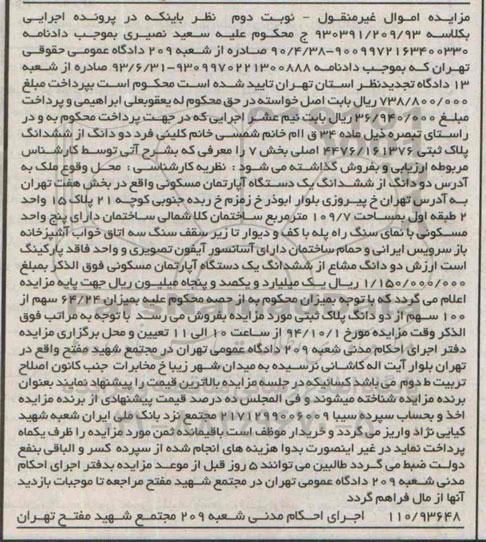 مزایده اموال غیرمنقول - نوبت دوم نظر باینکه در پرونده اجرایی
بکلاسه 930391/209/93 ج محکوم علیه سعید نصیری بموجب دادنامه
90/4/38-9009972163400330 صادره از شعبه 209 دادگاه عمومی حقوقی
تهران که بموجب دادنامه 9309970221300888-93/6/31 صادره از شعبه
13 دادگاه تجدیدنظر استان تهران تایید شده است محکوم است بپرداخت مبلغ
738/800/000 ریال بابت اصل خواسته در حق محکوم له یعقوبعلی ابراهیمی و پرداخت
مبلغ 36/940/000 ریال بابت نیم عشر اجرایی که در جهت پرداخت محکوم به و در
راستای تبصره ذیل ماده 34 ق اام خانم شمسی خانم کلینی فرد دو دانگ از ششدانگ
پلاک ثبتی 4476/161376 اصلی بخش 7 را معرفی که بشرح آتی توسط کارشناس
مربوطه ارزیابی و بفروش گذاشته می شود : نظریه کارشناسی : محل وقوع ملک به
آدرس دو دانگ از ششدانگ یک دستگاه آپارتمان مسکونی واقع در بخش هفت تهران
به آدرس تهران خ پیروزی بلوار ابوذر خ زمزم خ رنده جنوبی کوچه 21 پلاک 15 واحد
2 طبقه اول بمساحت 109/7 مترمربع ساختمان کلا شمالی ساختمان دارای پنج واحد
مسکونی با نمای سنگ راه پله با کف و دیوار تا زیر سقف سنگ سه اتاق خواب آشپزخانه
باز سرویس ایرانی و حمام ساختمان دارای آسانسور آیفون تصویری و واحد فاقد پارکینگ
است ارزش دو دانگ مشاع از ششدانگ یک دستگاه آپارتمان مسکونی فوق الذکر بمبلغ
1/150/000/000 ریال یک میلیارد و یکصد و پنجاه میلیون ریال جهت پایه مزایده
اعلام می گردد که با توجه بمیزان محکوم به از حصه محکوم علیه بمیزان 64/24 سهم از
100 سهم از دو دانگ پلاک ثبتی مورد مزایده بفروش می رسد با توجه به مراتب فوق
الذکر وقت مزایده مورخ 94/10/1 از ساعت 10 الی 11 تعیین و محل برگزاری مزایده
دفتر اجرای احکام مدنی شعبه 209 دادگاه عمومی تهران در مجتمع شهید مفتح واقع در
تهران بلوار آیت اله کاشانی نرسیده به میدان شهر زیبا خ مخابرات جنب کانون اصلاح
تربیت ط دوم می باشد کسانیکه در جلسه مزایده بالاترین قیمت را پیشنهاد نمایند بعنوان
برنده مزایده شناخته میشوند و فی المجلس ده درصد قیمت پیشنهادی از برنده مزایده
اخذ و بحساب سپرده سیبا 2171299006009 مجتمع نزد بانک ملی ایران شعبه شهید
کیایی نژاد واریز می گردد و خریدار موظف است باقیمانده ثمن مورد مزایده را ظرف یکماه
پرداخت نماید در غیر اینصورت بدوا هزینه های انجام شده از سپرده کسر و الباقی بنفع
دولت ضبط می گردد طالبین می توانند 5 روز قبل از موعد مزایده بدفتر اجرای احکام
مدنی شعبه 209 دادگاه عمومی تهران در مجتمع شهید مفتح مراجعه تا موجبات بازدید
آنها از مال فراهم گردد
110/93648 اجرای احکام مدنی شعبه 209 مجتمع شهید مفتح تهران